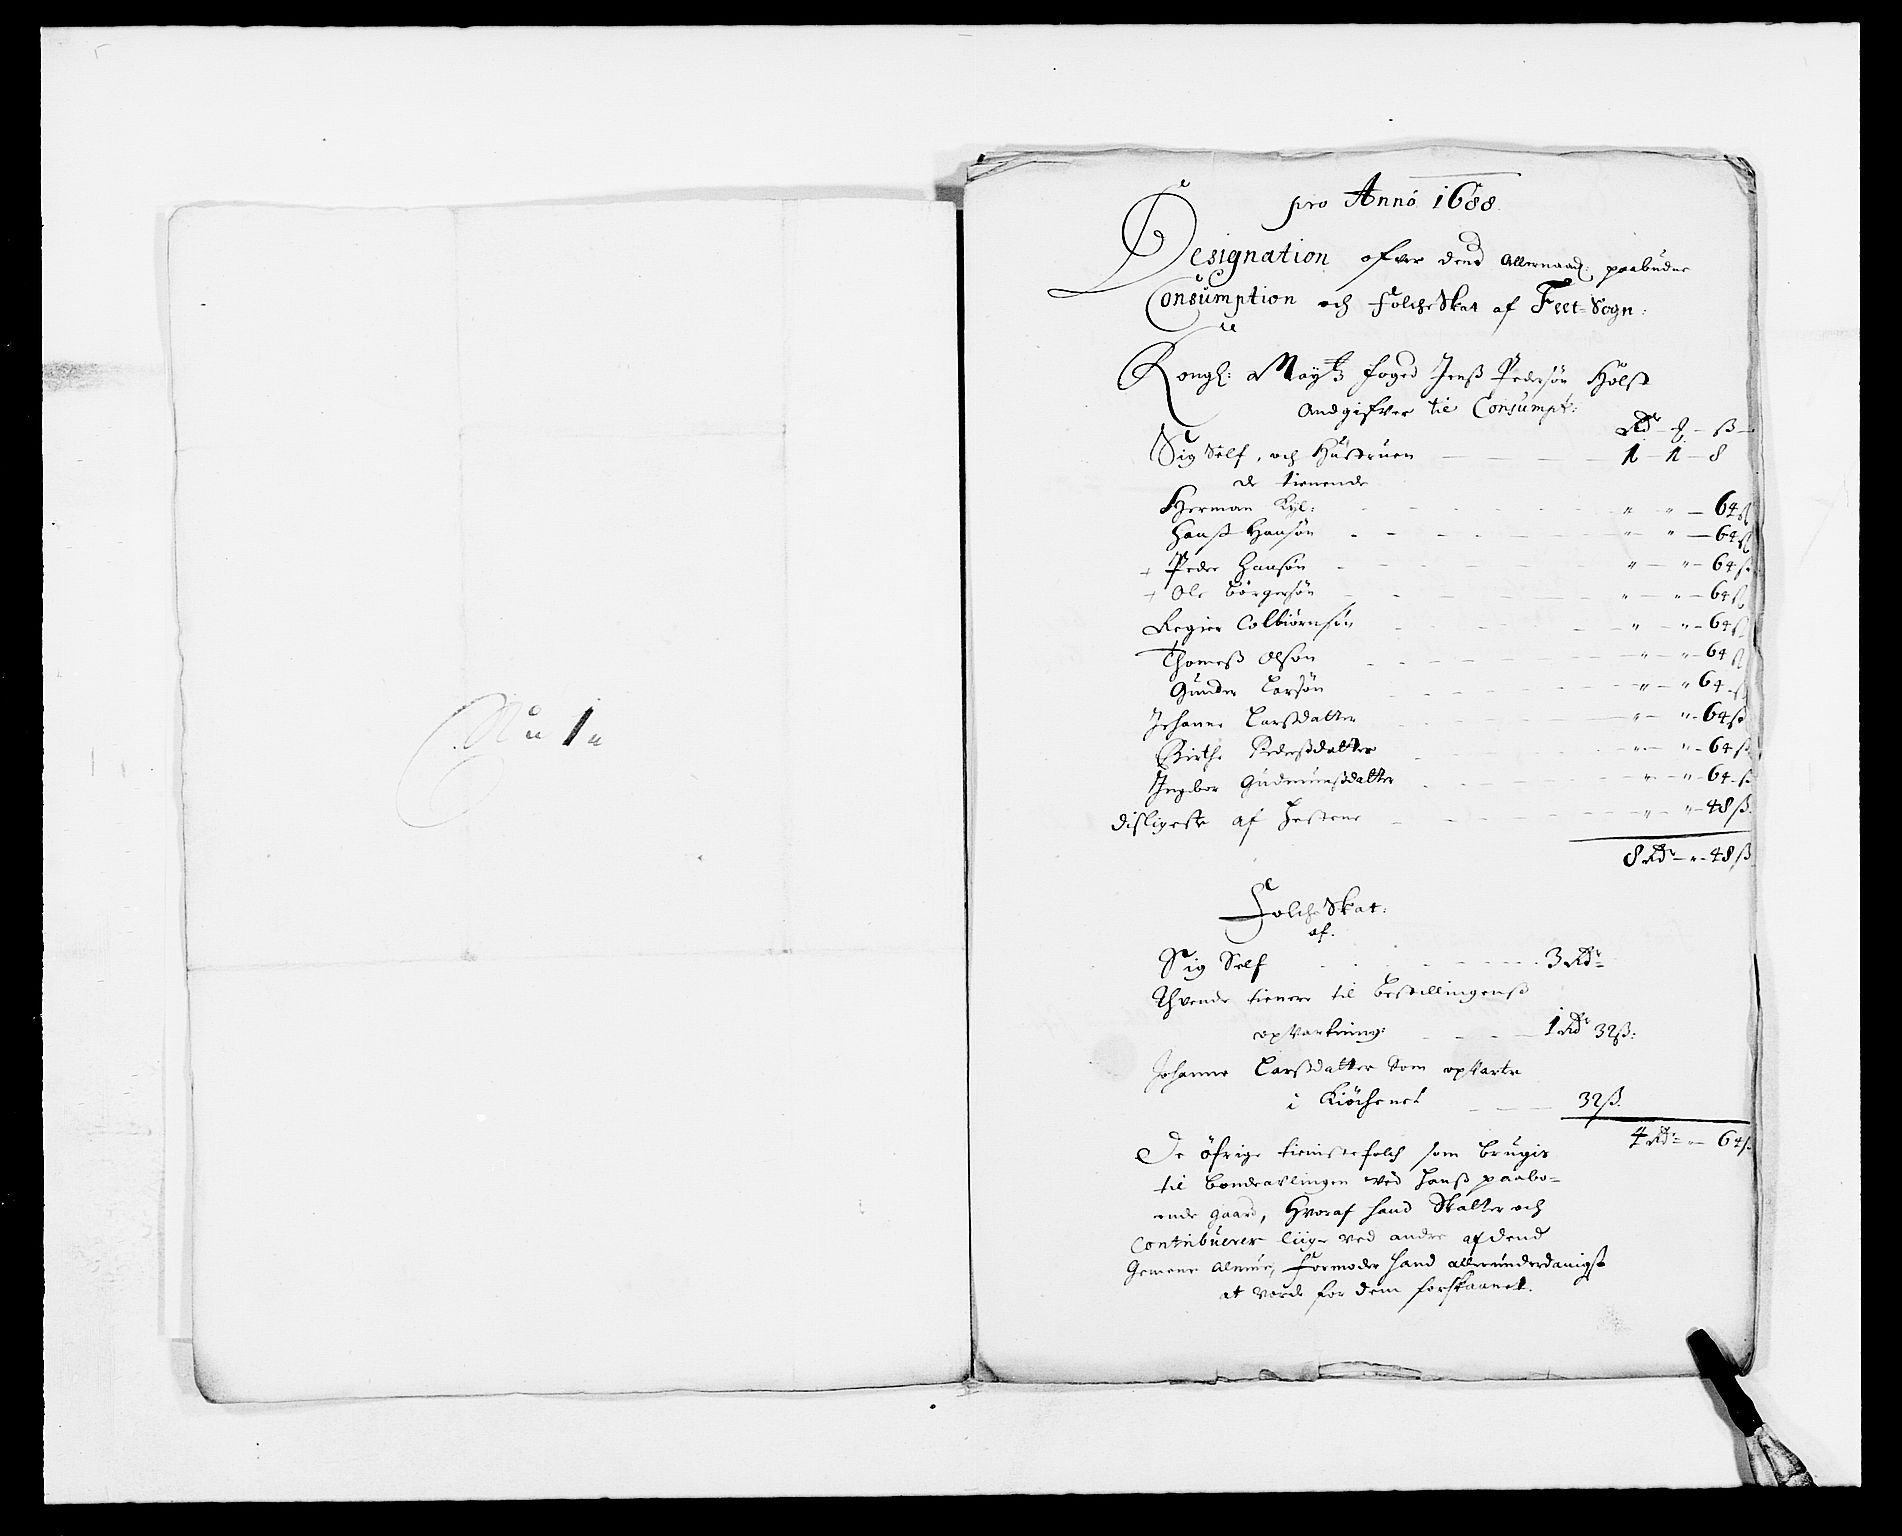 No 1
pro Anno 1688
Designation ofver dend Allernaad: paabudne
Consumption och Folche Skat af Feet-Sogn:
Kongl: Maytz foged Jenß Pedersøn Holst
Andgifver til Consumpt:
Rdr - ß
Sig Self, och Hustruen 1 - 1 - 8
de tienende
Herman Kyl: " " 64 ß
Hanß Hansøn " " 64 ß
+ Peder Hansøn " " 64 ß
+ Ole Børgersøn " " 64 ß
Regier Colbiørnsøn " " 64 ß
Thomeß Olsøn " " 64 ß
Gunder Larsøn " " 64 ß
Johanne Larsdatter " " 64 ß
Birthe Pederßdatter " " 64 ß
Ingebor Gudmunßdatter " " 64 ß
disligeste af Hestene " " 48 ß
8 Rdr - " - 48 ß
Folche Skat:
af.
Sig Self 3 Rdr
Thvende tienere til bestillingens
opVartning: 1 Rdr 32 ß:
Johanne Larßdatter Som opVarte
i Kiøchenet 32 ß.
4 Rdr - " - 64 ß
De øfrige tienistefolch som brugis
til bondeavlingen ved hanß paabo-
ende gaard, Hvoraf hand Skatter och
Contribuerer liige ved andre af dend
Gemene Almue, formoder hand allerunderdanigst
at vorde for dem forskaanet.